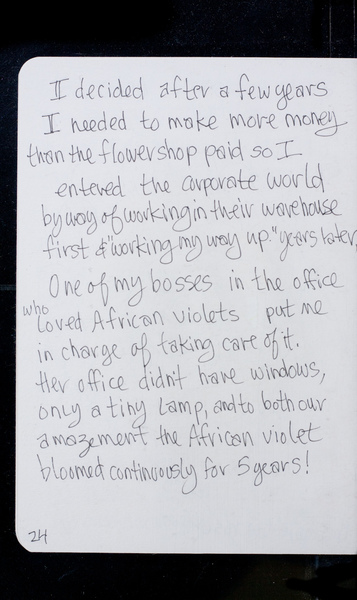 I decided after a few years
I needed to make more money
than the flower shop paid so I
entered the corporate world
by way of working in their warehouse
first & "working my way up." years later,
One of my bosses in the office
who loved African violets put me
in charge of taking care of it.
Her office didn't have windows,
only a tiny lamp, and to both our
amazement the African violet
bloomed continuously for 5 years!
24